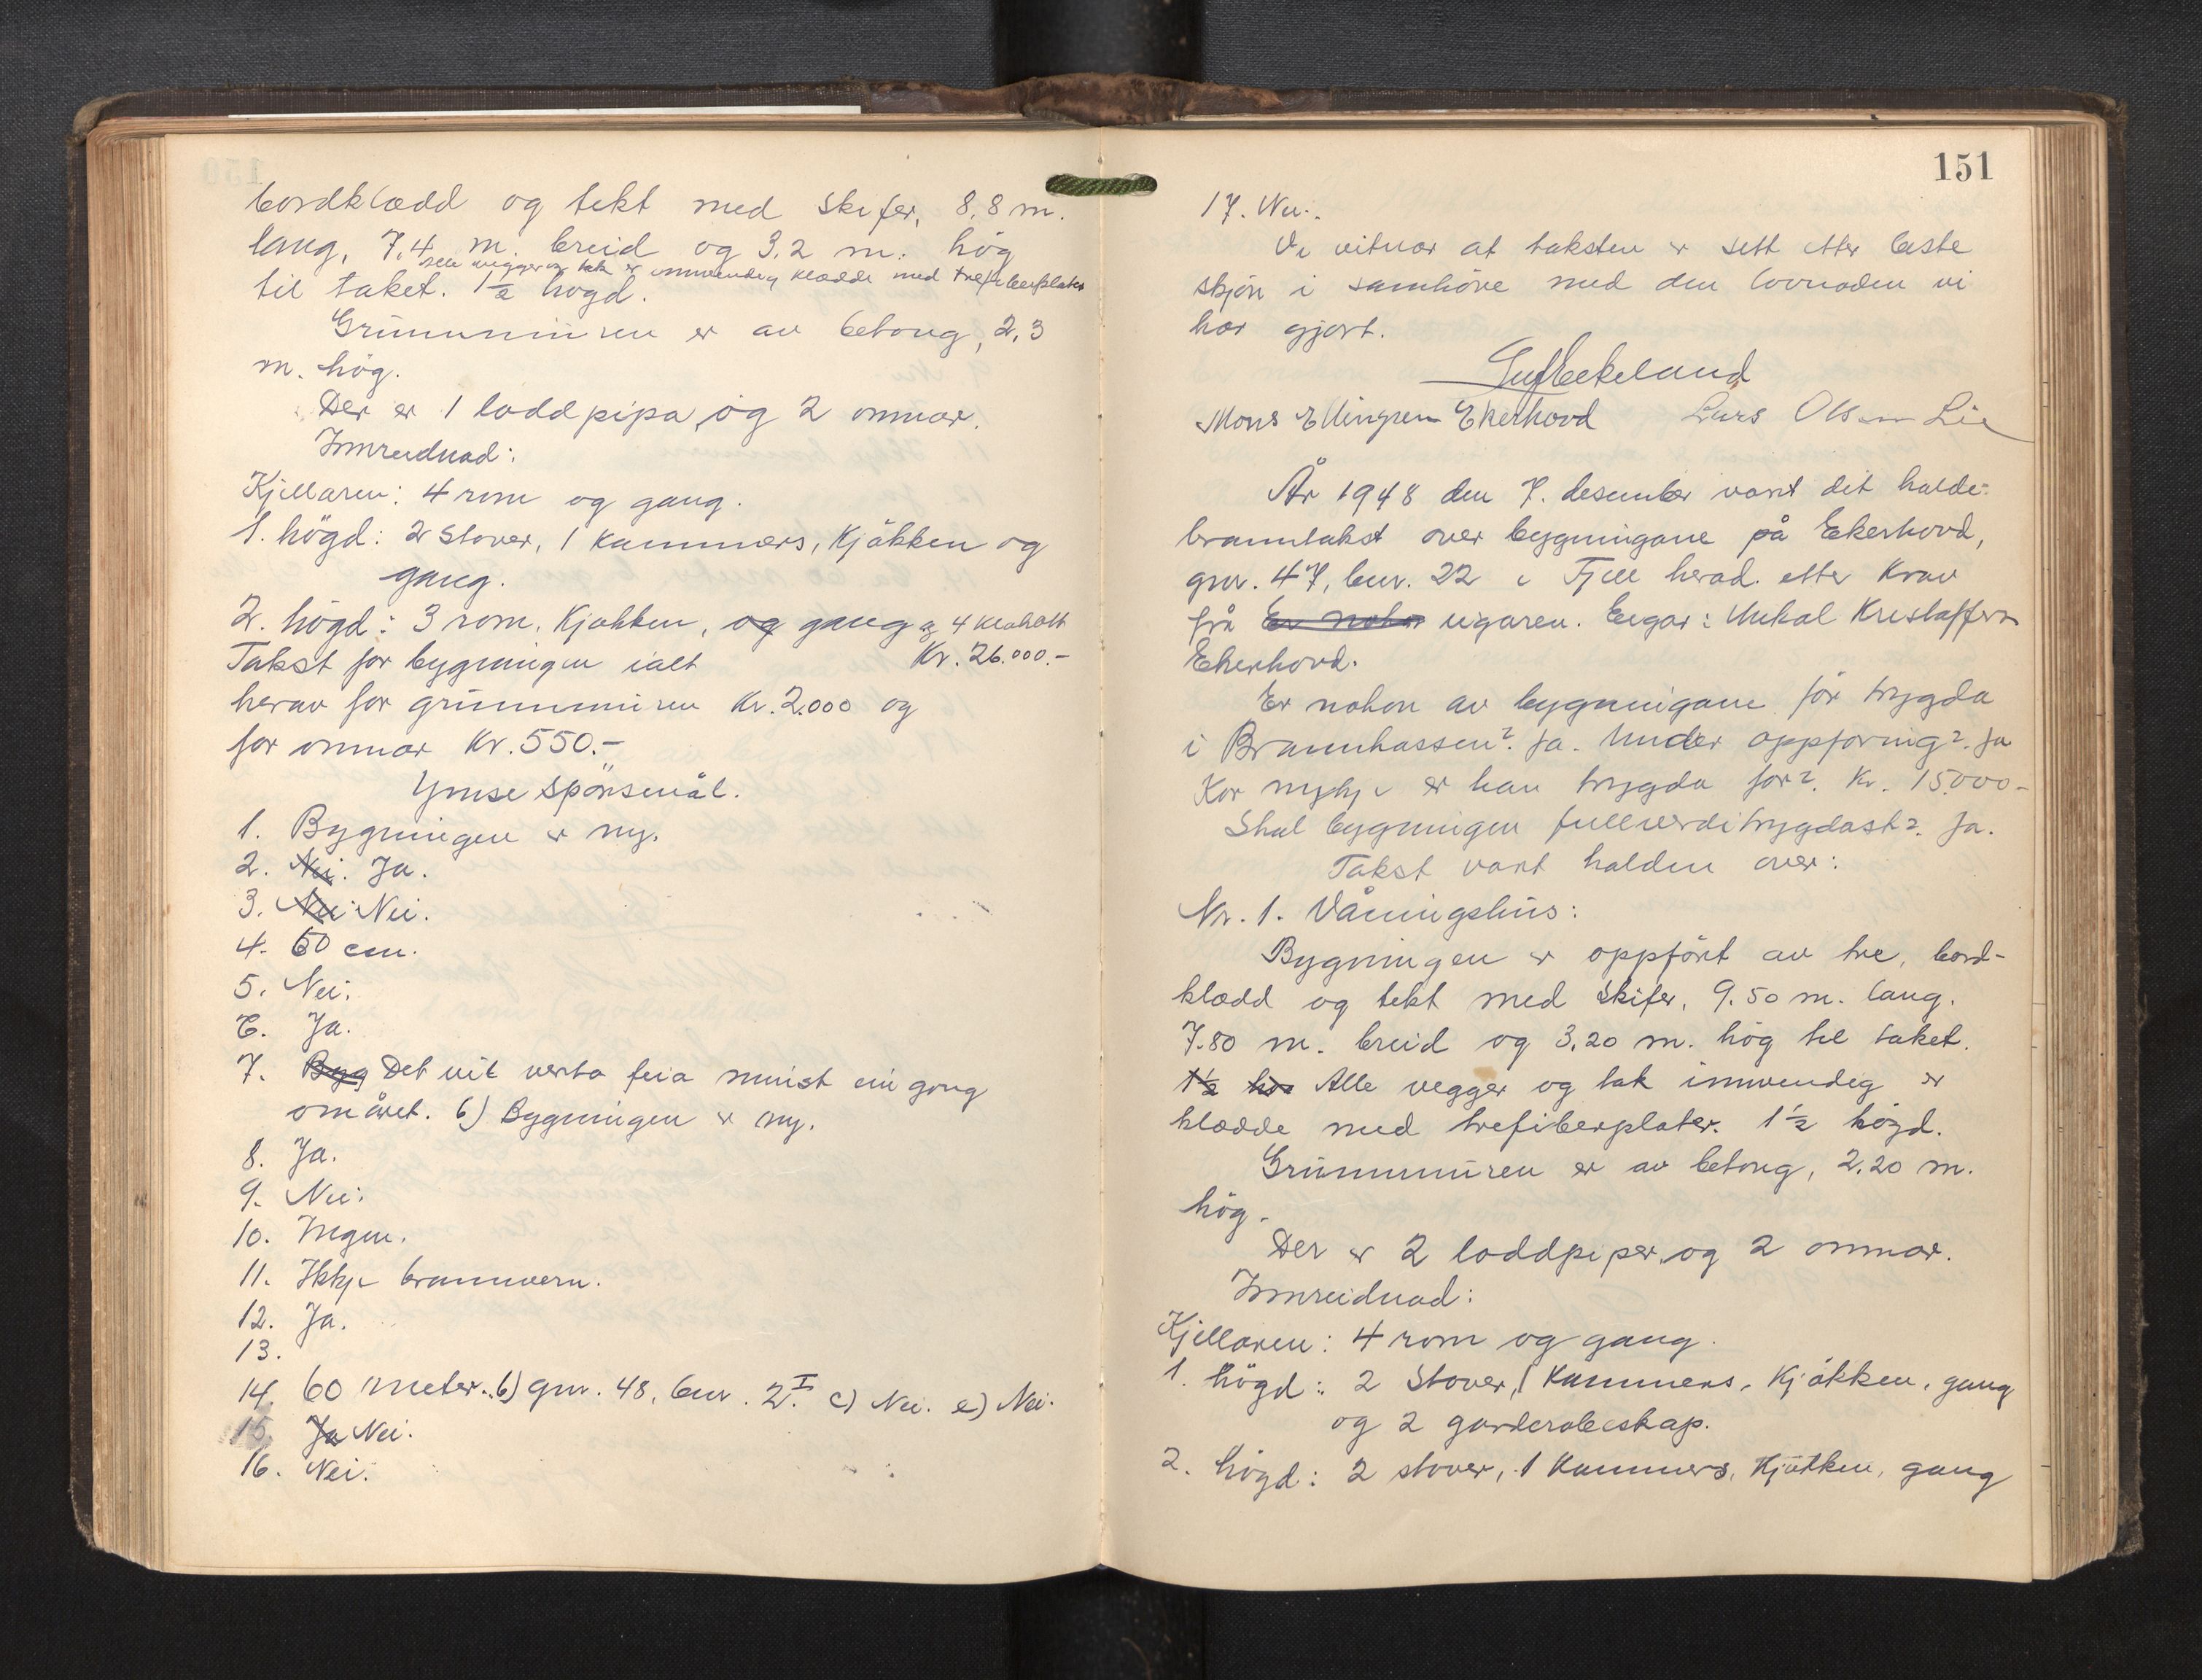 bordklædd og tekt med skifer, 8,8 m.
lang, 7,4 m. breid og 3,2 m. høg
alle vegger og tak er innvendig klædde med trefiberplater
til taket. 1½ høgd.
Grunnmuren er av betong, 2,3
m. høg.
Der er 1 loddpipa, og 2 omnar.
Innreidnad:
Kjellaren: 4 rom og gang.
1. høgd: 2 stover, 1 kammers, kjøkken og
gang.
2. høgd: 3 rom, kjøkken, og gang og 4 klakott
Takst for bygningen ialt Kr. 26.000.-
herav for grunnmuren Kr. 2.000 og
for omnar Kr. 550.-
Ymse spørsmål.
1. Bygningen er ny.
2. Nei. Ja.
3. Nei Nei.
4. 60 cm.
5. Nei.
6. Ja.
7. Byg Det vil verta feia minst ein gong
om året. b) Bygningen er ny.
8. Ja.
9. Nei.
10. Ingen.
11. Ikkje brannvern.
12. Ja.
13.
14. 60 meter. b) gnr. 48, bnr. 2.I c) Nei. e) Nei.
15. Ja Nei.
16. Nei.
151
17. Nei.
Vi vitnar at taksten er sett etter beste
skjøn i samhøve med den lovnaden vi
har gjort.
Mons Ellingsen Ekerhovd Lars Olsen Lie
År 1948 den 7. desember vart det halde
branntakst over bygningane på Ekerhovd,
gnr. 47, bnr. 22 i Fjell herad. etter krav
frå Er nokon eigaren. Eigar: Mikal Kristoffersen
Ekerhovd.
Er nokon av bygningane før trygda
i Brannkassen? Ja. Under oppføring? Ja
Kor mykje er han trygda for? Kr. 15.000-
Skal bygningen fullverditrygdast? Ja.
Takst vart halden over:
Nr. 1. Våningshus:
Bygningen er oppført av tre, bord-
klædd og tekt med skifer, 9.50 m. lang.
7.80 m. breid og 3.20 m. høg til taket.
1½ hø Alle vegger og tak innvendig er
klædde med trefiberplater. 1½ høgd.
Grunnmuren er av betong, 2.20 m.
høg.
Der er 2 loddpiper, og 2 omnar.
Innreidnad:
Kjellaren: 4 rom og gang.
1. høgd: 2 stover, 1 kammers, kjøkken, gang
og 2 garderobeskap.
2. høgd: 2 stover, 1 kammers, kjøkken, gang